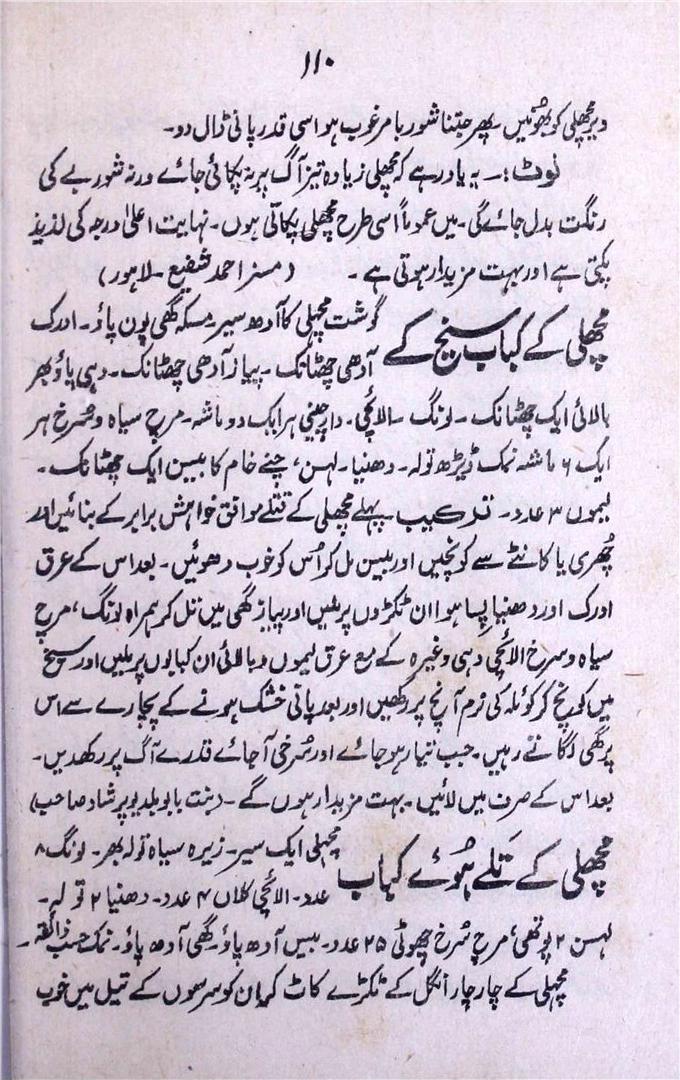 ۱۱۰
دیر مچھلی کو بھونیں۔ پھر جتنا شوربا مرغوب ہو اسی قدر پانی ڈال دو۔
نوٹ:۔ یہ یاد رہے کہ مچھلی زیادہ تیز آگ پر نہ پکائی جائے ورنہ شوربے کی
رنگت بدل جائے گی۔ میں عموماً اسی طرح مچھلی پکاتی ہوں۔ نہایت اعلیٰ درجہ کی لذیذ
پکتی ہے اور بہت مزیدار ہوتی ہے۔ (مسز احمد شفیع۔ لاہور)
مچھلی کے کباب سیخ کے گوشت مچھلی کا آدھ سیر۔ مسکہ گھی پون پاؤ۔ ادرک
آدھی چھٹانک۔ پیاز آدھی چھٹانک۔ دہی پاؤ بھر
بالائی ایک چھٹانک۔ لونگ۔ الائچی۔ دارچینی ہر ایک دو ماشہ۔ مرچ سیاہ و سُرخ ہر
ایک ۶ ماشہ نمک ڈیڑھ تولہ۔ دھنیا۔ لہسن، چنے خام کا بیسن ایک چھٹانک۔
لیموں ۳ عدد۔ ترکیب پہلے مچھلی کے قتلے موافق خواہش برابر کے بنائیں اور
چُھری یا کانٹے سے کونچیں اور بیسن مل کر اُس کو خوب دھوئیں۔ بعد اس کے عرق
ادرک اور دھنیا پِسا ہوا ان ٹکڑوں پر ملیں اور پیاز گھی میں تل کر ہمراہ لونگ، مرچ
سیاہ و سرخ الائچی دہی وغیرہ کے مع عرق لیموں و بالائی ان کبابوں پر ملیں اور سیخ
میں کونچ کر کوئلہ کی نرم آنچ پر رکھیں اور بعد پانی خشک ہونے کے پچارے سے اس
پر گھی لگاتے رہیں۔ جب تیار ہو جائے اور سُرخی آ جائے قدرے آگ پر رکھدیں۔
بعد اس کے صرف میں لائیں۔ بہت مزیدار ہوں گے۔ (بنت بابو بلدیو پرشاد صاحب)
مچھلی کے تَلے ہُوئے کباب مچھلی ایک سیر۔ زیرہ سیاہ تولہ بھر۔ لونگ ۸
عدد۔ الائچی کلاں ۴ عدد۔ دھنیا ۲ تولہ۔
لہسن ۲ پوتھی، مرچ سُرخ چھوٹی ۲۵ عدد۔ بیسن آدھ پاؤ۔ گھی آدھ پاؤ۔ نمک حسب ذائقہ۔
مچھلی کے چار چار اُنگل کے ٹکڑے کاٹ کر ان کو سرسوں کے تیل میں خوب